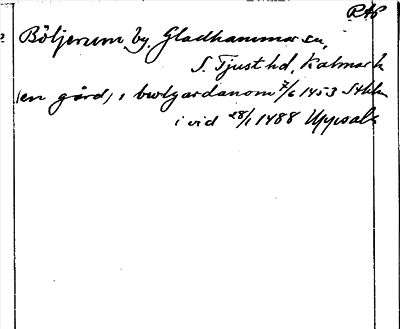 RAP
Böljerum by. Gladhammar sn,
S. Tjust hd, Kalmar l.
(en gård) i bwlgardanom 7/6 1453 Sthlm
i vid 28/1 1488 Uppsala